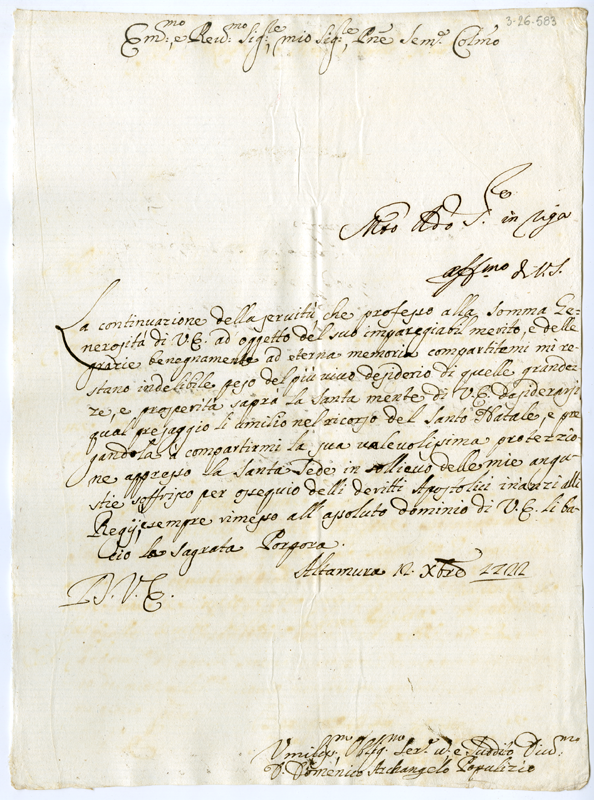 3-26-583
Em.mo e Rev.mo Sig.re, mio Sig.re, Pne Sem.o Colmo
in riga
aff.mo di V.S.
La continuazione della servitù che professo alla somma Ge-
nerosità di V.E. ad oggetto del suo impareggiabil merito, e delle
grazie benegnamente ad eterna memoria compartitemi mi re-
stano indelibile pejo del più vivo desiderio di quelle grandez-
ze, e prosperità saprà la santa mente di V.E. desiderarsi
qual presaggio li umilio nel ricorso del Santo Natale, e pre-
gandola a compartirmi la sua valevolissima protezzio-
ne appresso la Santa Sede in sollievo delle mie angu-
stie soffrisco per ossequio delli deritti Apostolici inanzi alli
Regij, e sempre rimesso all'assoluto dominio di V.E. li ba-
cio la sagrata Porpora.
Altamura 12. Xbre 1722
D. V. E.
Umiliss.mo Oblig.mo Ser.e v.e e Suddito Div.mo
D. Domenico Archangelo Papalizio